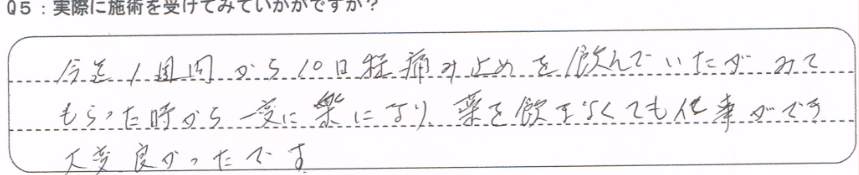 Q5：実際に施術を受けてみていかがですか？
今迄1週間から10日程痛み止めを飲んでいたが みて
もらった時から一度に楽になり、薬を飲まなくても仕事ができ
大変良かったです